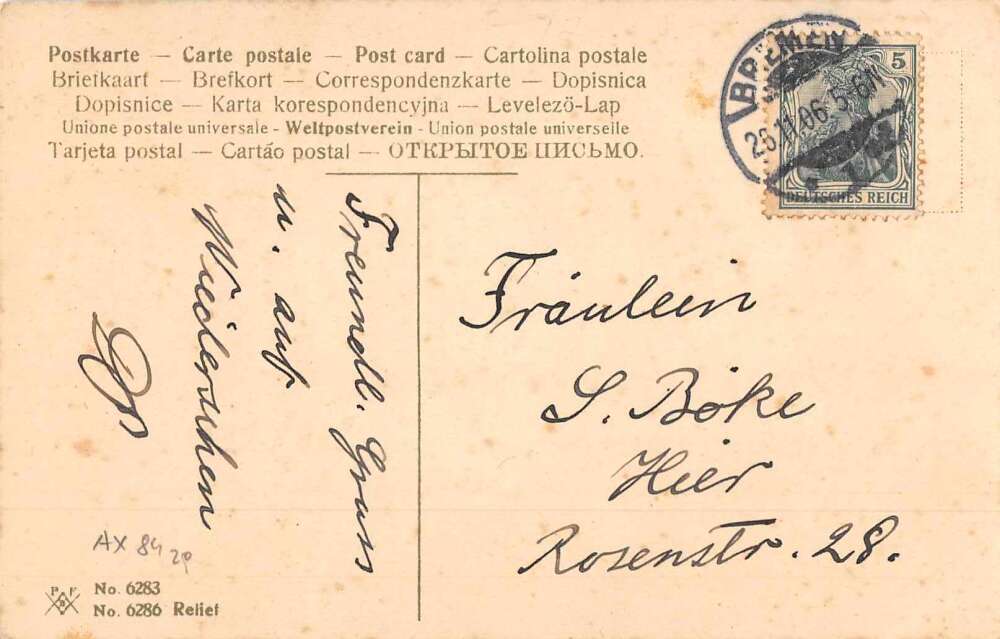 Postkarte — Carte postale — Post card — Cartolina postale
Briefkaart — Brefkort — Correspondenzkarte — Dopisnica
Dopisnice — Karta korespondencyjna — Levelező-Lap
Unione postale universale - Weltpostverein - Union postale universelle
Tarjeta postal — Cartão postal — ОТКРЫТОЕ ПИСЬМО.
BREMEN
26.11.06. 5-6N
5
DEUTSCHES REICH
Freundl. Gruss
u. auf
Wiedersehen
Fräulein
S. Böke
Hier
Rosenstr. 28.
AX 84
P F
B
No. 6283
No. 6286 Relief